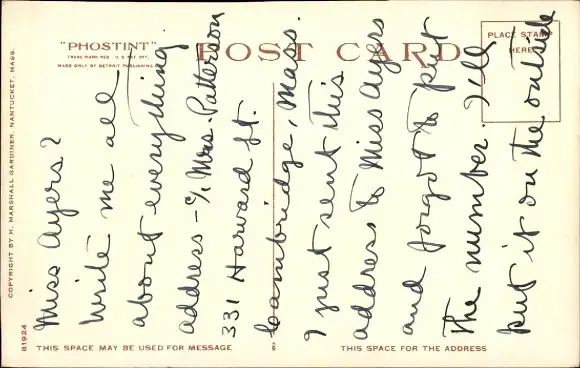 "PHOSTINT"
TRADE MARK REG. U.S. PAT. OFF.
MADE ONLY BY DETROIT PUBLISHING CO.
POST CARD
PLACE STAMP
HERE
COPYRIGHT BY H. MARSHALL GARDINER, NANTUCKET, MASS.
81924
Miss Ayers?
Write me all
about everything
address - c/o Mrs. Patterson
331 Harvard St.
Cambridge, Mass.
I just sent this
address to Miss Ayers
and forgot to put
the number. I'll
put it on the outside
THIS SPACE MAY BE USED FOR MESSAGE
THIS SPACE FOR THE ADDRESS